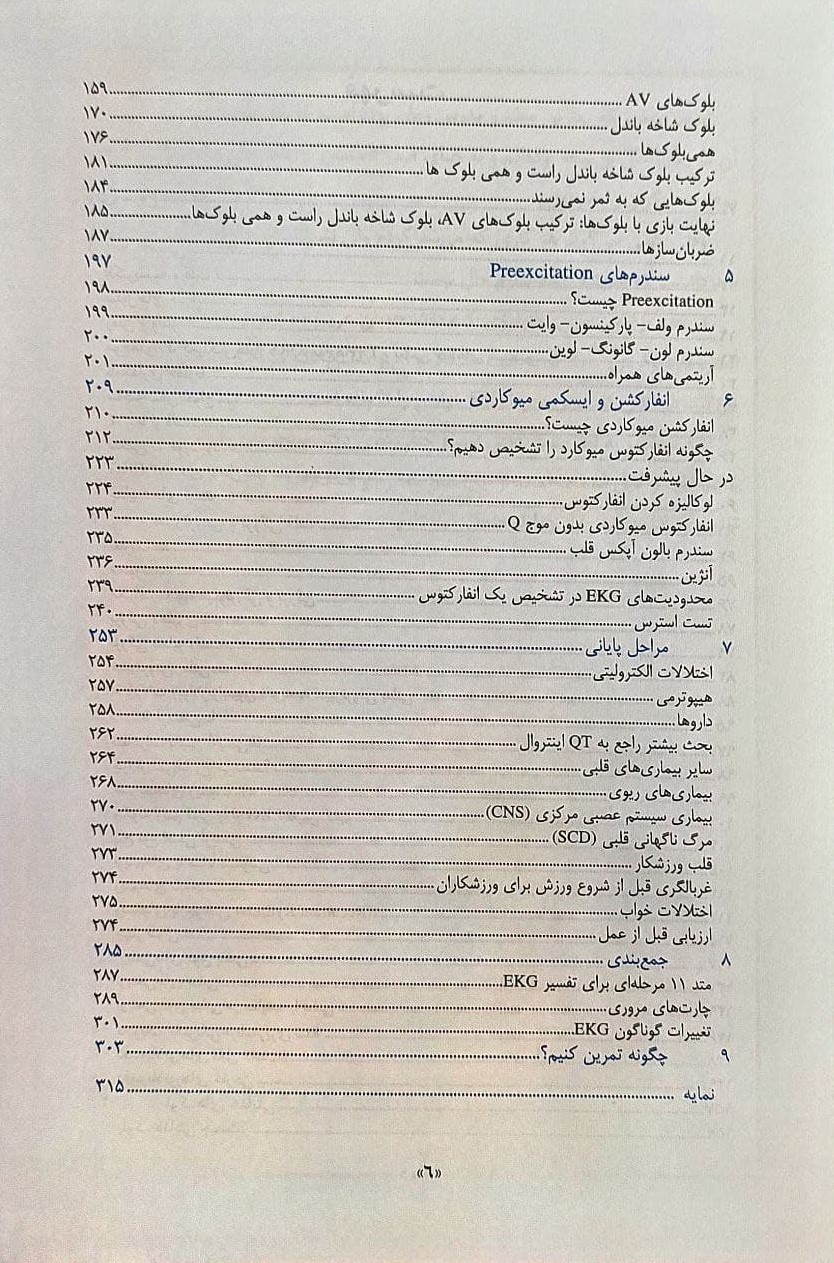 بلوک‌های AV ........ ۱۵۹
بلوک شاخه باندل ........ ۱۷۰
همی‌بلوک‌ها ........ ۱۷۶
ترکیب بلوک شاخه باندل راست و همی بلوک ها ........ ۱۸۱
بلوک‌هایی که به ثمر نمی‌رسند ........ ۱۸۴
نهایت بازی با بلوک‌ها: ترکیب بلوک‌های AV، بلوک شاخه باندل راست و همی بلوک‌ها ........ ۱۸۵
ضربان‌سازها ........ ۱۸۷
۵ سندرم‌های Preexcitation ۱۹۷
Preexcitation چیست؟ ........ ۱۹۸
سندرم ولف- پارکینسون- وایت ........ ۱۹۹
سندرم لون- گانونگ- لوین ........ ۲۰۰
آریتمی‌های همراه ........ ۲۰۱
۶ انفارکشن و ایسکمی میوکاردی ........ ۲۰۹
انفارکشن میوکاردی چیست؟ ........ ۲۱۰
چگونه انفارکتوس میوکارد را تشخیص دهیم؟ ........ ۲۱۲
در حال پیشرفت ........ ۲۲۳
لوکالیزه کردن انفارکتوس ........ ۲۲۴
انفارکتوس میوکاردی بدون موج Q ........ ۲۳۳
سندرم بالون آپکس قلب ........ ۲۳۵
آنژین ........ ۲۳۶
محدودیت‌های EKG در تشخیص یک انفارکتوس ........ ۲۳۹
تست استرس ........ ۲۴۰
۷ مراحل پایانی ........ ۲۵۳
اختلالات الکترولیتی ........ ۲۵۴
هیپوترمی ........ ۲۵۷
داروها ........ ۲۵۸
بحث بیشتر راجع به QT اینتروال ........ ۲۶۲
سایر بیماری‌های قلبی ........ ۲۶۴
بیماری‌های ریوی ........ ۲۶۸
بیماری سیستم عصبی مرکزی (CNS) ........ ۲۷۰
مرگ ناگهانی قلبی (SCD) ........ ۲۷۱
قلب ورزشکار ........ ۲۷۳
غربالگری قبل از شروع ورزش برای ورزشکاران ........ ۲۷۴
اختلالات خواب ........ ۲۷۵
ارزیابی قبل از عمل ........ ۲۷۴
۸ جمع‌بندی ........ ۲۸۵
متد ۱۱ مرحله‌ای برای تفسیر EKG ........ ۲۸۷
چارت‌های مروری ........ ۲۸۹
تغییرات گوناگون EKG ........ ۳۰۱
۹ چگونه تمرین کنیم؟ ........ ۳۰۳
نمایه ........ ۳۱۵
«٦»